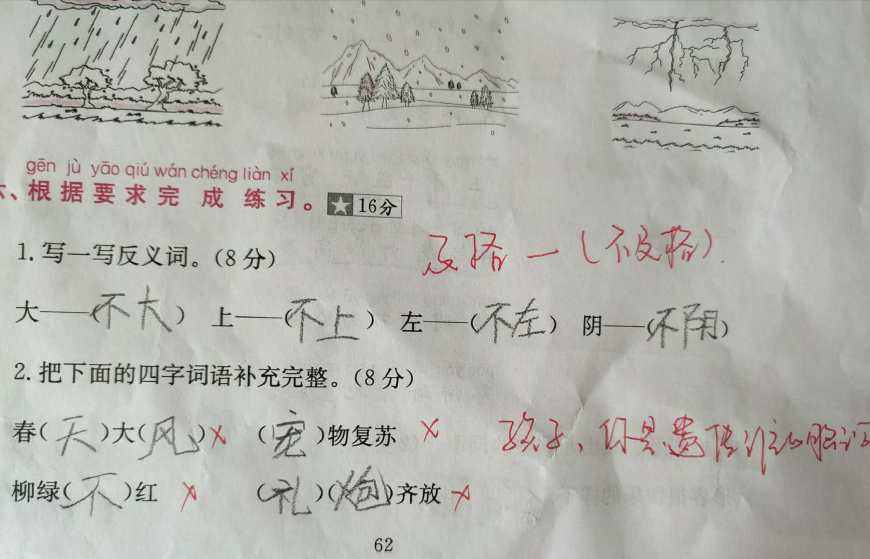 gēn jù yāo qiú wán chéng liàn xí
六、根据要求完成练习。★ 16分
1.写一写反义词。(8分)
及格一(不及格).
大——(不大) 上——(不上) 左——(不左) 阴——(不阴)
2.把下面的四字词语补充完整。(8分)
春(天)大(风)× (宠)物复苏 ×
孩子、你是遗传谁的脑
柳绿(不)红 × (礼)(炮)齐放 ×
62